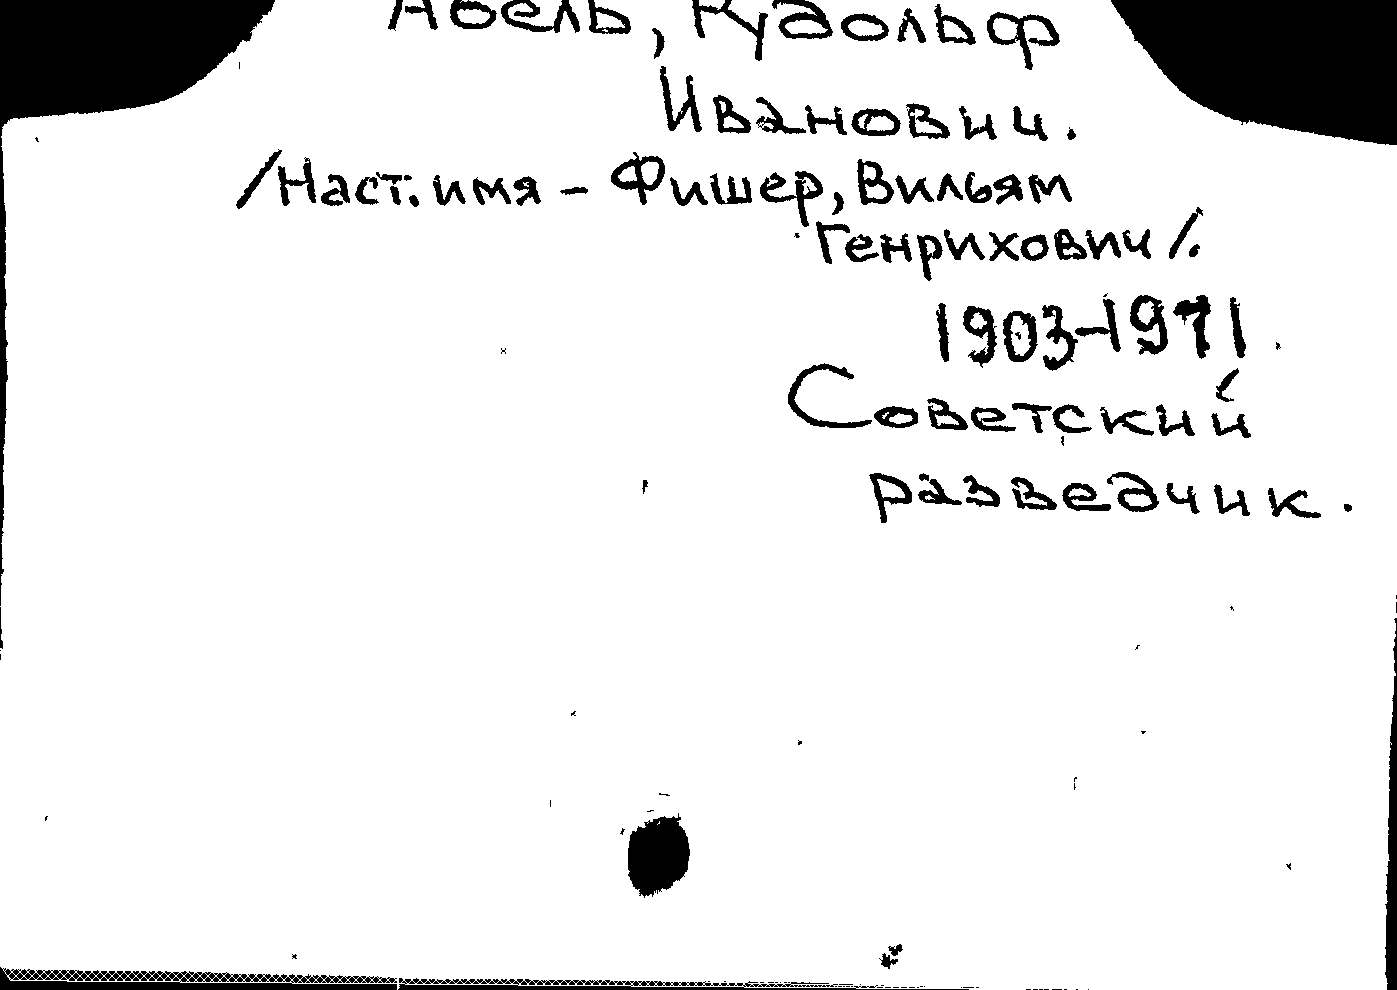 Абель, Рудольф
Иванович.
/Наст. имя – Фишер, Вильям
Генрихович/.
1903-1971.
Советский
разведчик.